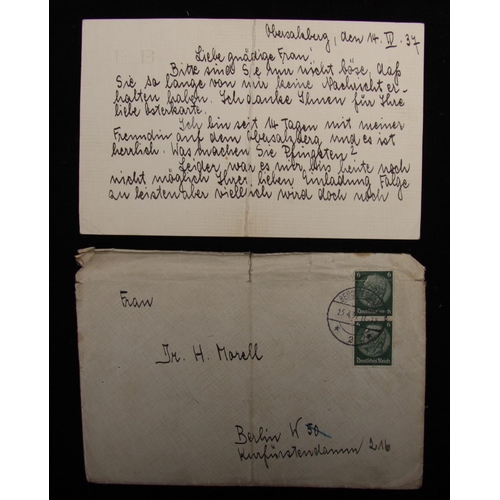 Obersalzberg, den 14. IV. 37
Liebe gnädige Frau!
Bitte sind Sie nun nicht böse, daß
Sie so lange von mir keine Nachricht er-
halten haben. Ich danke Ihnen für Ihre
liebe Osterkarte.
Ich bin seit 14 Tagen mit meiner
Freundin auf dem Obersalzberg und es ist
herrlich. Was machen Sie Pfingsten?
Leider war es mir bis heute noch
nicht möglich Ihrer lieben Einladung Folge
zu leisten aber vielleich wird doch noch
Frau
Dr. H. Morell
Berlin W 50
Kurfürstendamm 216
6 6
Deutsches Reich
6 6
Deutsches Reich